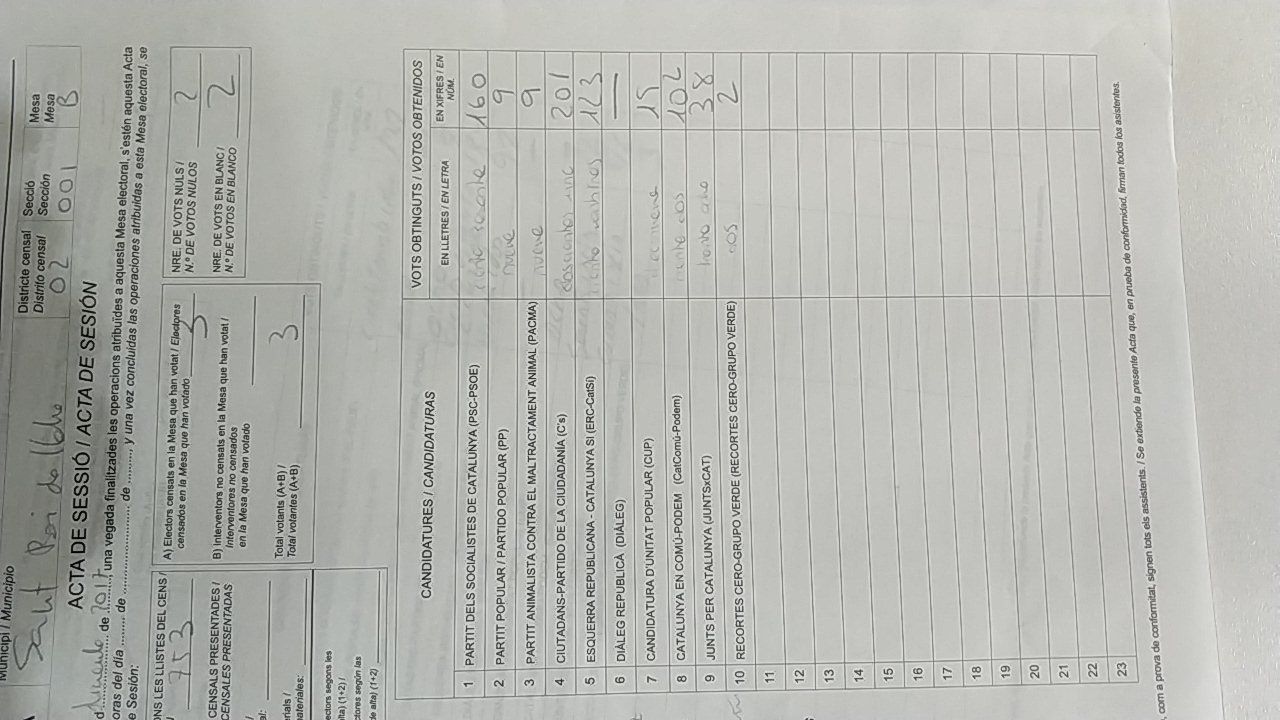 Municipi / Municipio
Sant Boi de Llob.
Districte censal
Distrito censal
02
Secció
Sección
001
Mesa
Mesa
B
ACTA DE SESSIÓ / ACTA DE SESIÓN
de 2017, una vegada finalitzades les operacions atribuïdes a aquesta Mesa electoral, s'estén aquesta Acta
oras del día ......... de ........................ de ........., y una vez concluidas las operaciones atribuidas a esta Mesa electoral, se
e Sesión:
ONS LES LLISTES DEL CENS /
753
CENSALS PRESENTADES /
CENSALES PRESENTADAS
A) Electors censats en la Mesa que han votat / Electores
censados en la Mesa que han votado
B) Interventors no censats en la Mesa que han votat /
Interventores no censados
en la Mesa que han votado
Total votants (A+B) /
Total votantes (A+B)
3
NRE. DE VOTS NULS /
N.º DE VOTOS NULOS
2
NRE. DE VOTS EN BLANC /
N.º DE VOTOS EN BLANCO
2
ectors segons les
alta) (1+2) /
ctores según las
de alta) (1+2)
CANDIDATURES / CANDIDATURAS
VOTS OBTINGUTS / VOTOS OBTENIDOS
EN LLETRES / EN LETRA
EN XIFRES / EN NÚM.
1 PARTIT DELS SOCIALISTES DE CATALUNYA (PSC-PSOE) ciento sesenta 160
2 PARTIT POPULAR / PARTIDO POPULAR (PP) nueve 9
3 PARTIT ANIMALISTA CONTRA EL MALTRACTAMENT ANIMAL (PACMA) nueve 9
4 CIUTADANS-PARTIDO DE LA CIUDADANÍA (C's) doscientos uno 201
5 ESQUERRA REPUBLICANA - CATALUNYA SÍ (ERC-CatSí) ciento veintitres 123
6 DIÀLEG REPUBLICÀ (DIÀLEG) —
7 CANDIDATURA D'UNITAT POPULAR (CUP)
8 CATALUNYA EN COMÚ-PODEM (CatComú-Podem) ciento dos 102
9 JUNTS PER CATALUNYA (JUNTSxCAT) treinta ocho 38
10 RECORTES CERO-GRUPO VERDE (RECORTES CERO-GRUPO VERDE) dos 2
11
12
13
14
15
16
17
18
19
20
21
22
23
, com a prova de conformitat, signen tots els assistents. / Se extiende la presente Acta que, en prueba de conformidad, firman todos los asistentes.